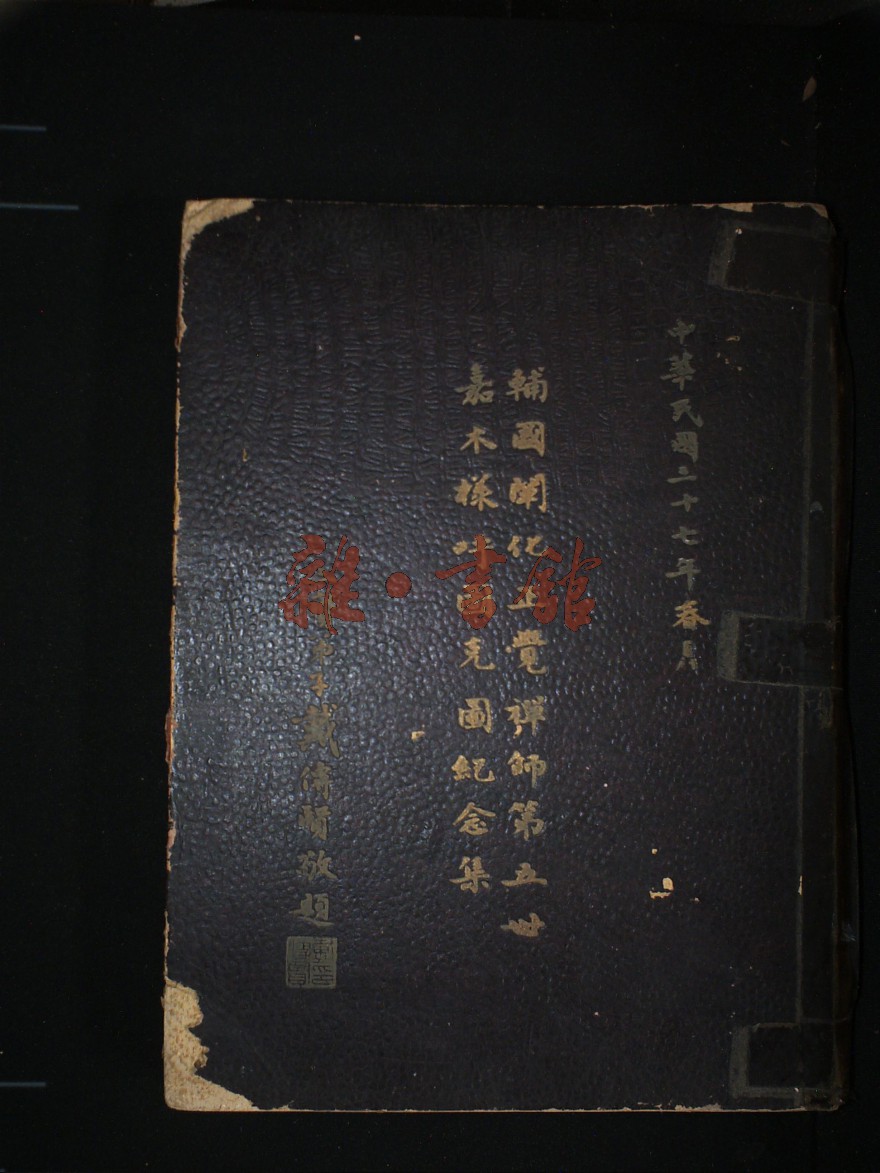 中華民國二十七年春月
輔國闡化正覺禪師第五世
嘉木樣呼圖克圖紀念集
弟子戴傳賢敬題
雜·書館